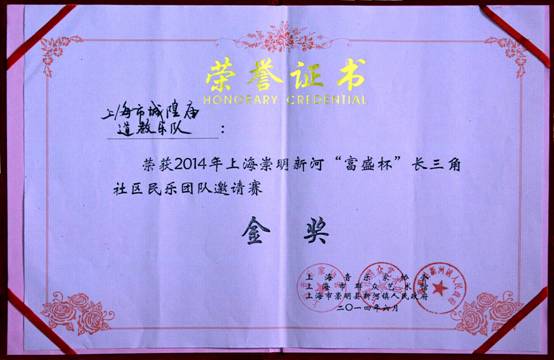 荣誉证书
HONORARY CREDENTIAL
上海市城隍庙
道教乐队 :
荣获2014年上海崇明新河“富盛杯”长三角
社区民乐团队邀请赛
金奖
上海音乐家协会
上海市群众艺术馆
上海市崇明县新河镇人民政府
二〇一四年六月